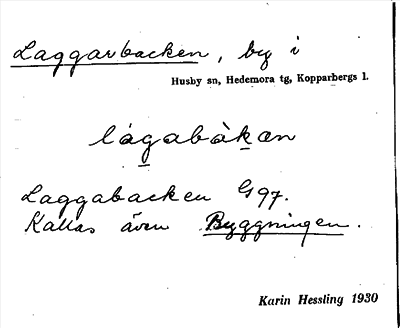 Laggarbacken, by i
Husby sn, Hedemora tg, Kopparbergs l.
lágabàkan
Laggabacken G 97.
Kallas även Byggningen.
Karin Hessling 1930